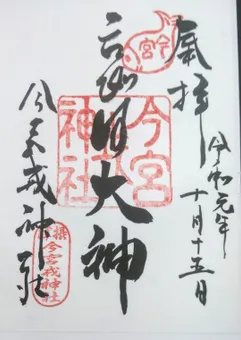 奉拝
令和元年
十月十五日
今宮
大神
今宮戎神社
今宮
神社
今宮戎神社